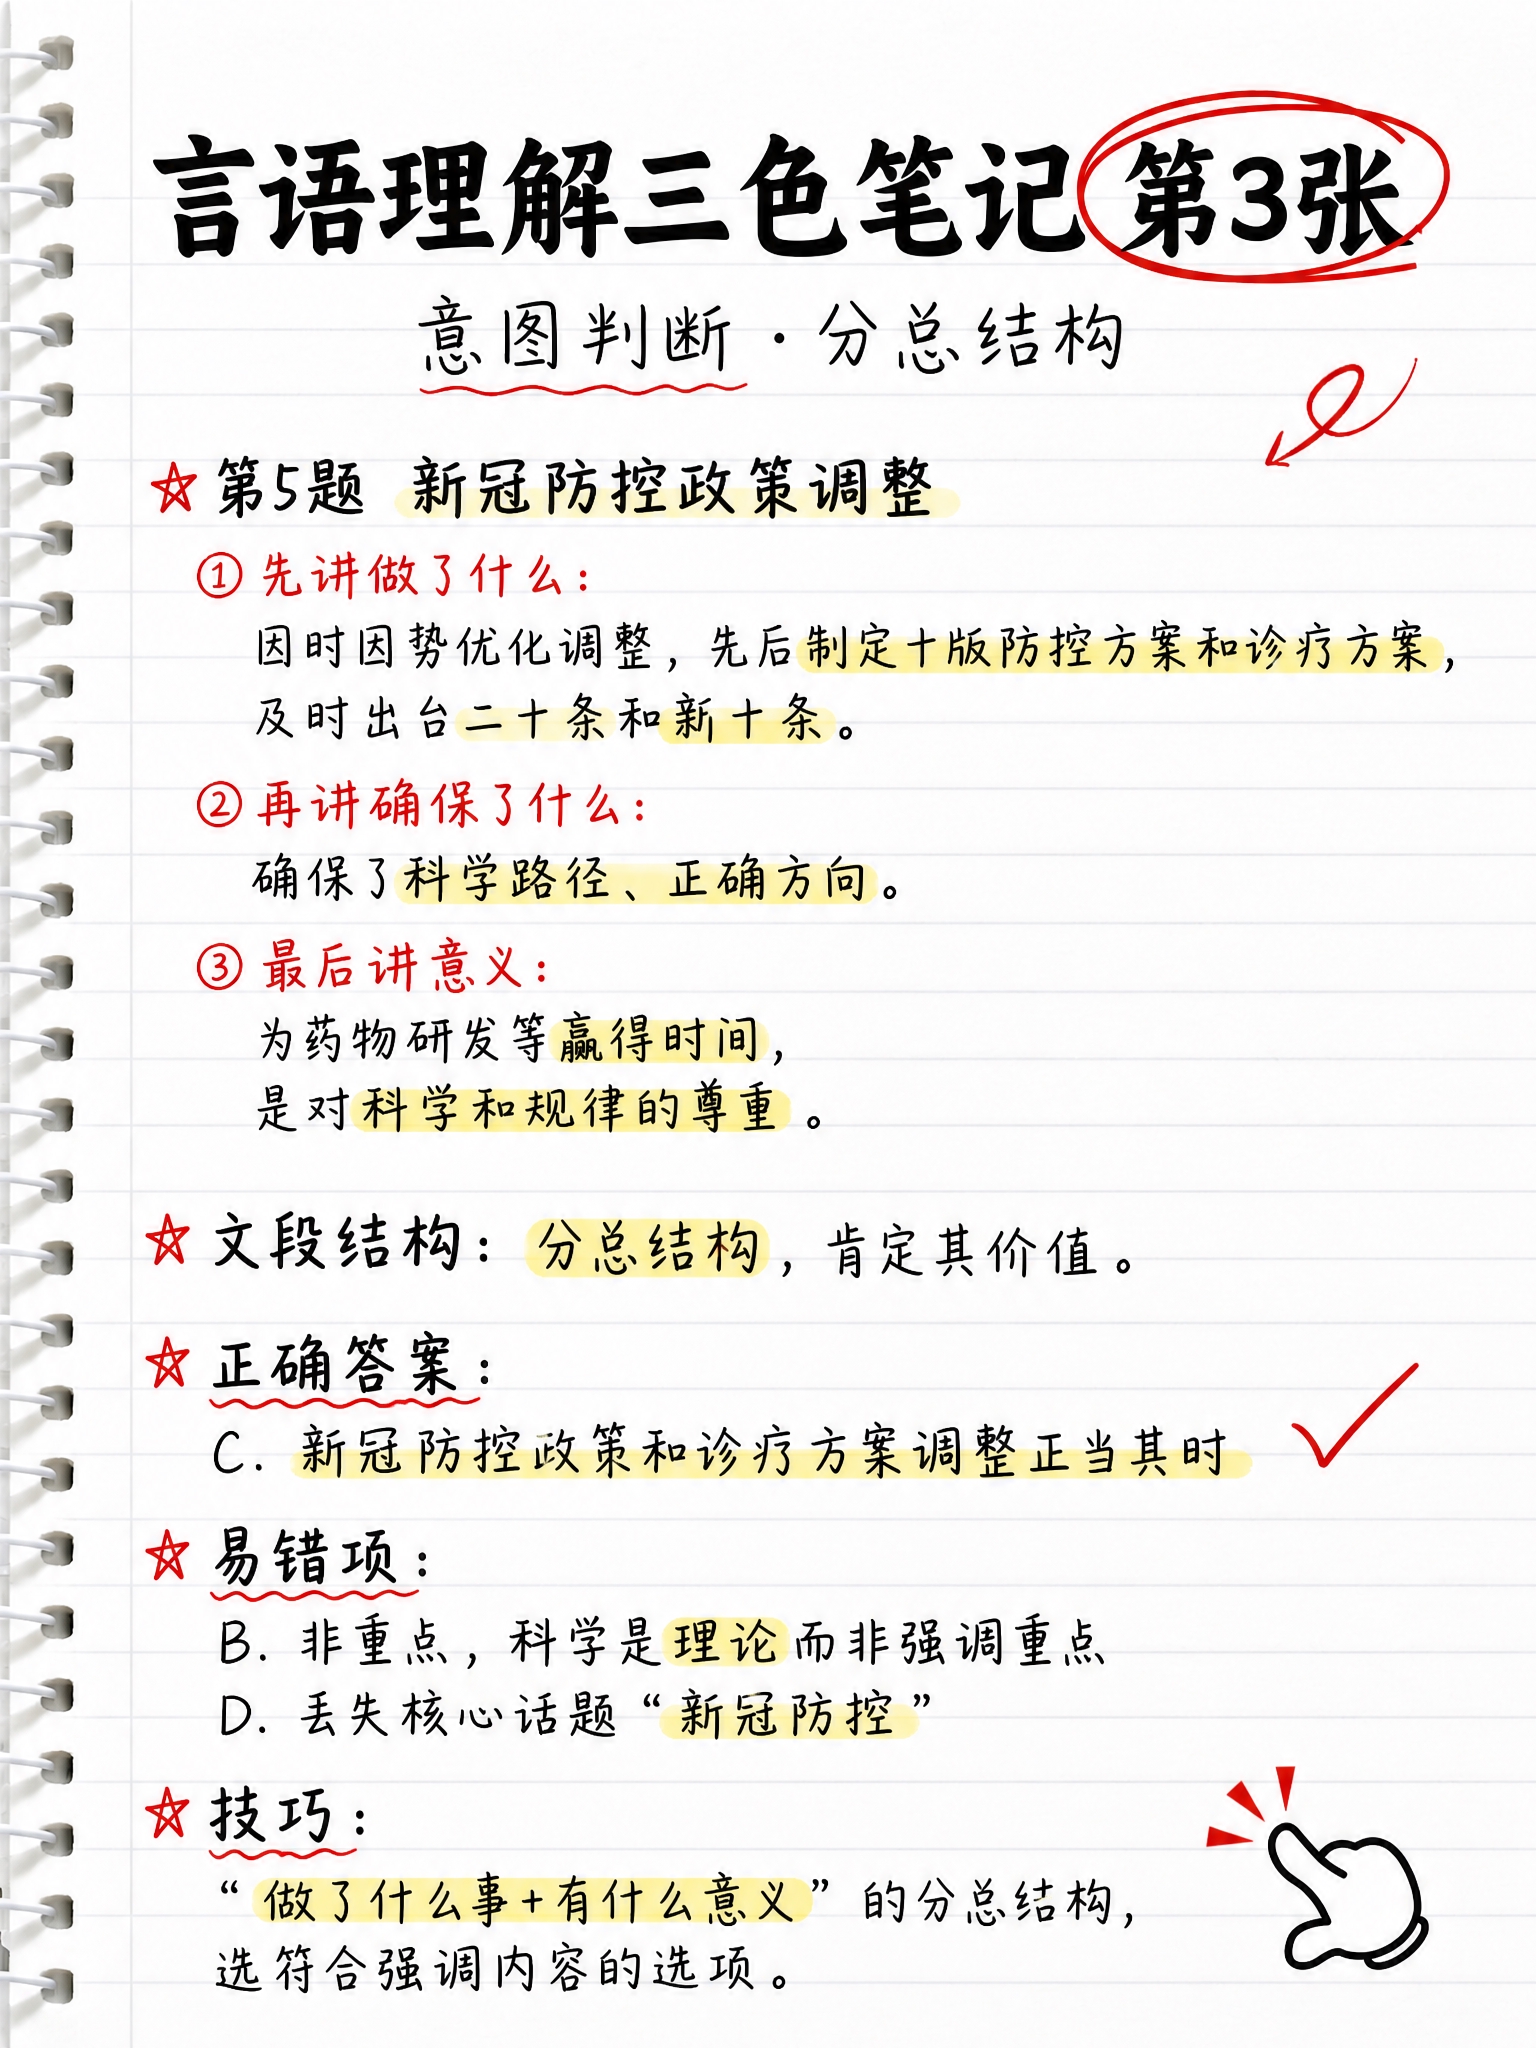 言语理解三色笔记 第3张
意图判断·分总结构
第5题 新冠防控政策调整
① 先讲做了什么：
因时因势优化调整，先后制定十版防控方案和诊疗方案，
及时出台二十条和新十条。
② 再讲确保了什么：
确保了科学路径、正确方向。
③ 最后讲意义：
为药物研发等赢得时间，
是对科学和规律的尊重。
文段结构：分总结构，肯定其价值。
正确答案：
C. 新冠防控政策和诊疗方案调整正当其时
易错项：
B. 非重点，科学是理论而非强调重点
D. 丢失核心话题“新冠防控”
技巧：
“做了什么事+有什么意义”的分总结构，
选符合强调内容的选项。